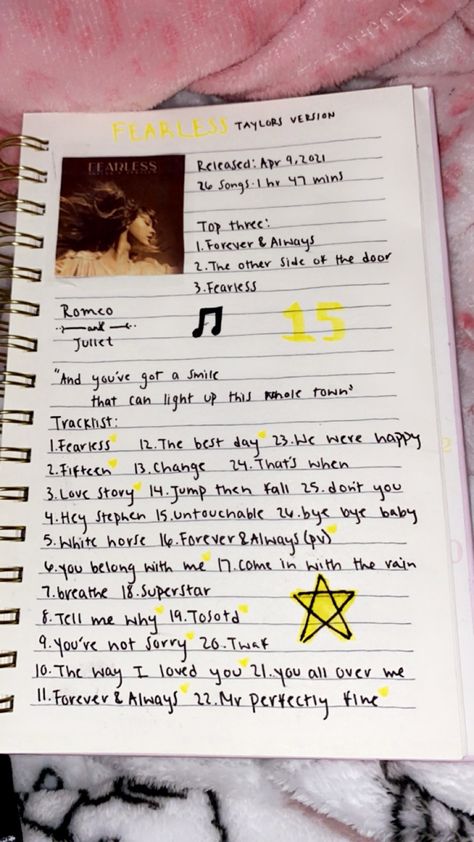 FEARLESS TAYLORS VERSION
FEARLESS
Released: Apr 9, 2021
26 songs · 1 hr 47 mins
Top three:
1. Forever & Always
2. The other side of the door
3. Fearless
Romeo
and
Juliet
15
"And you've got a smile
that can light up this whole town"
Tracklist:
1. Fearless 12. The best day 23. We were happy
2. Fifteen 13. Change 24. That's when
3. Love Story 14. Jump then fall 25. don't you
4. Hey Stephen 15. untouchable 26. bye bye baby
5. White horse 16. Forever & Always (pv)
6. you belong with me 17. come in with the rain
7. breathe 18. Superstar
8. Tell me why 19. Tosotd
9. you're not sorry 20. Twaf
10. The way I loved you 21. you all over me
11. Forever & Always 22. Mr perfectly fine